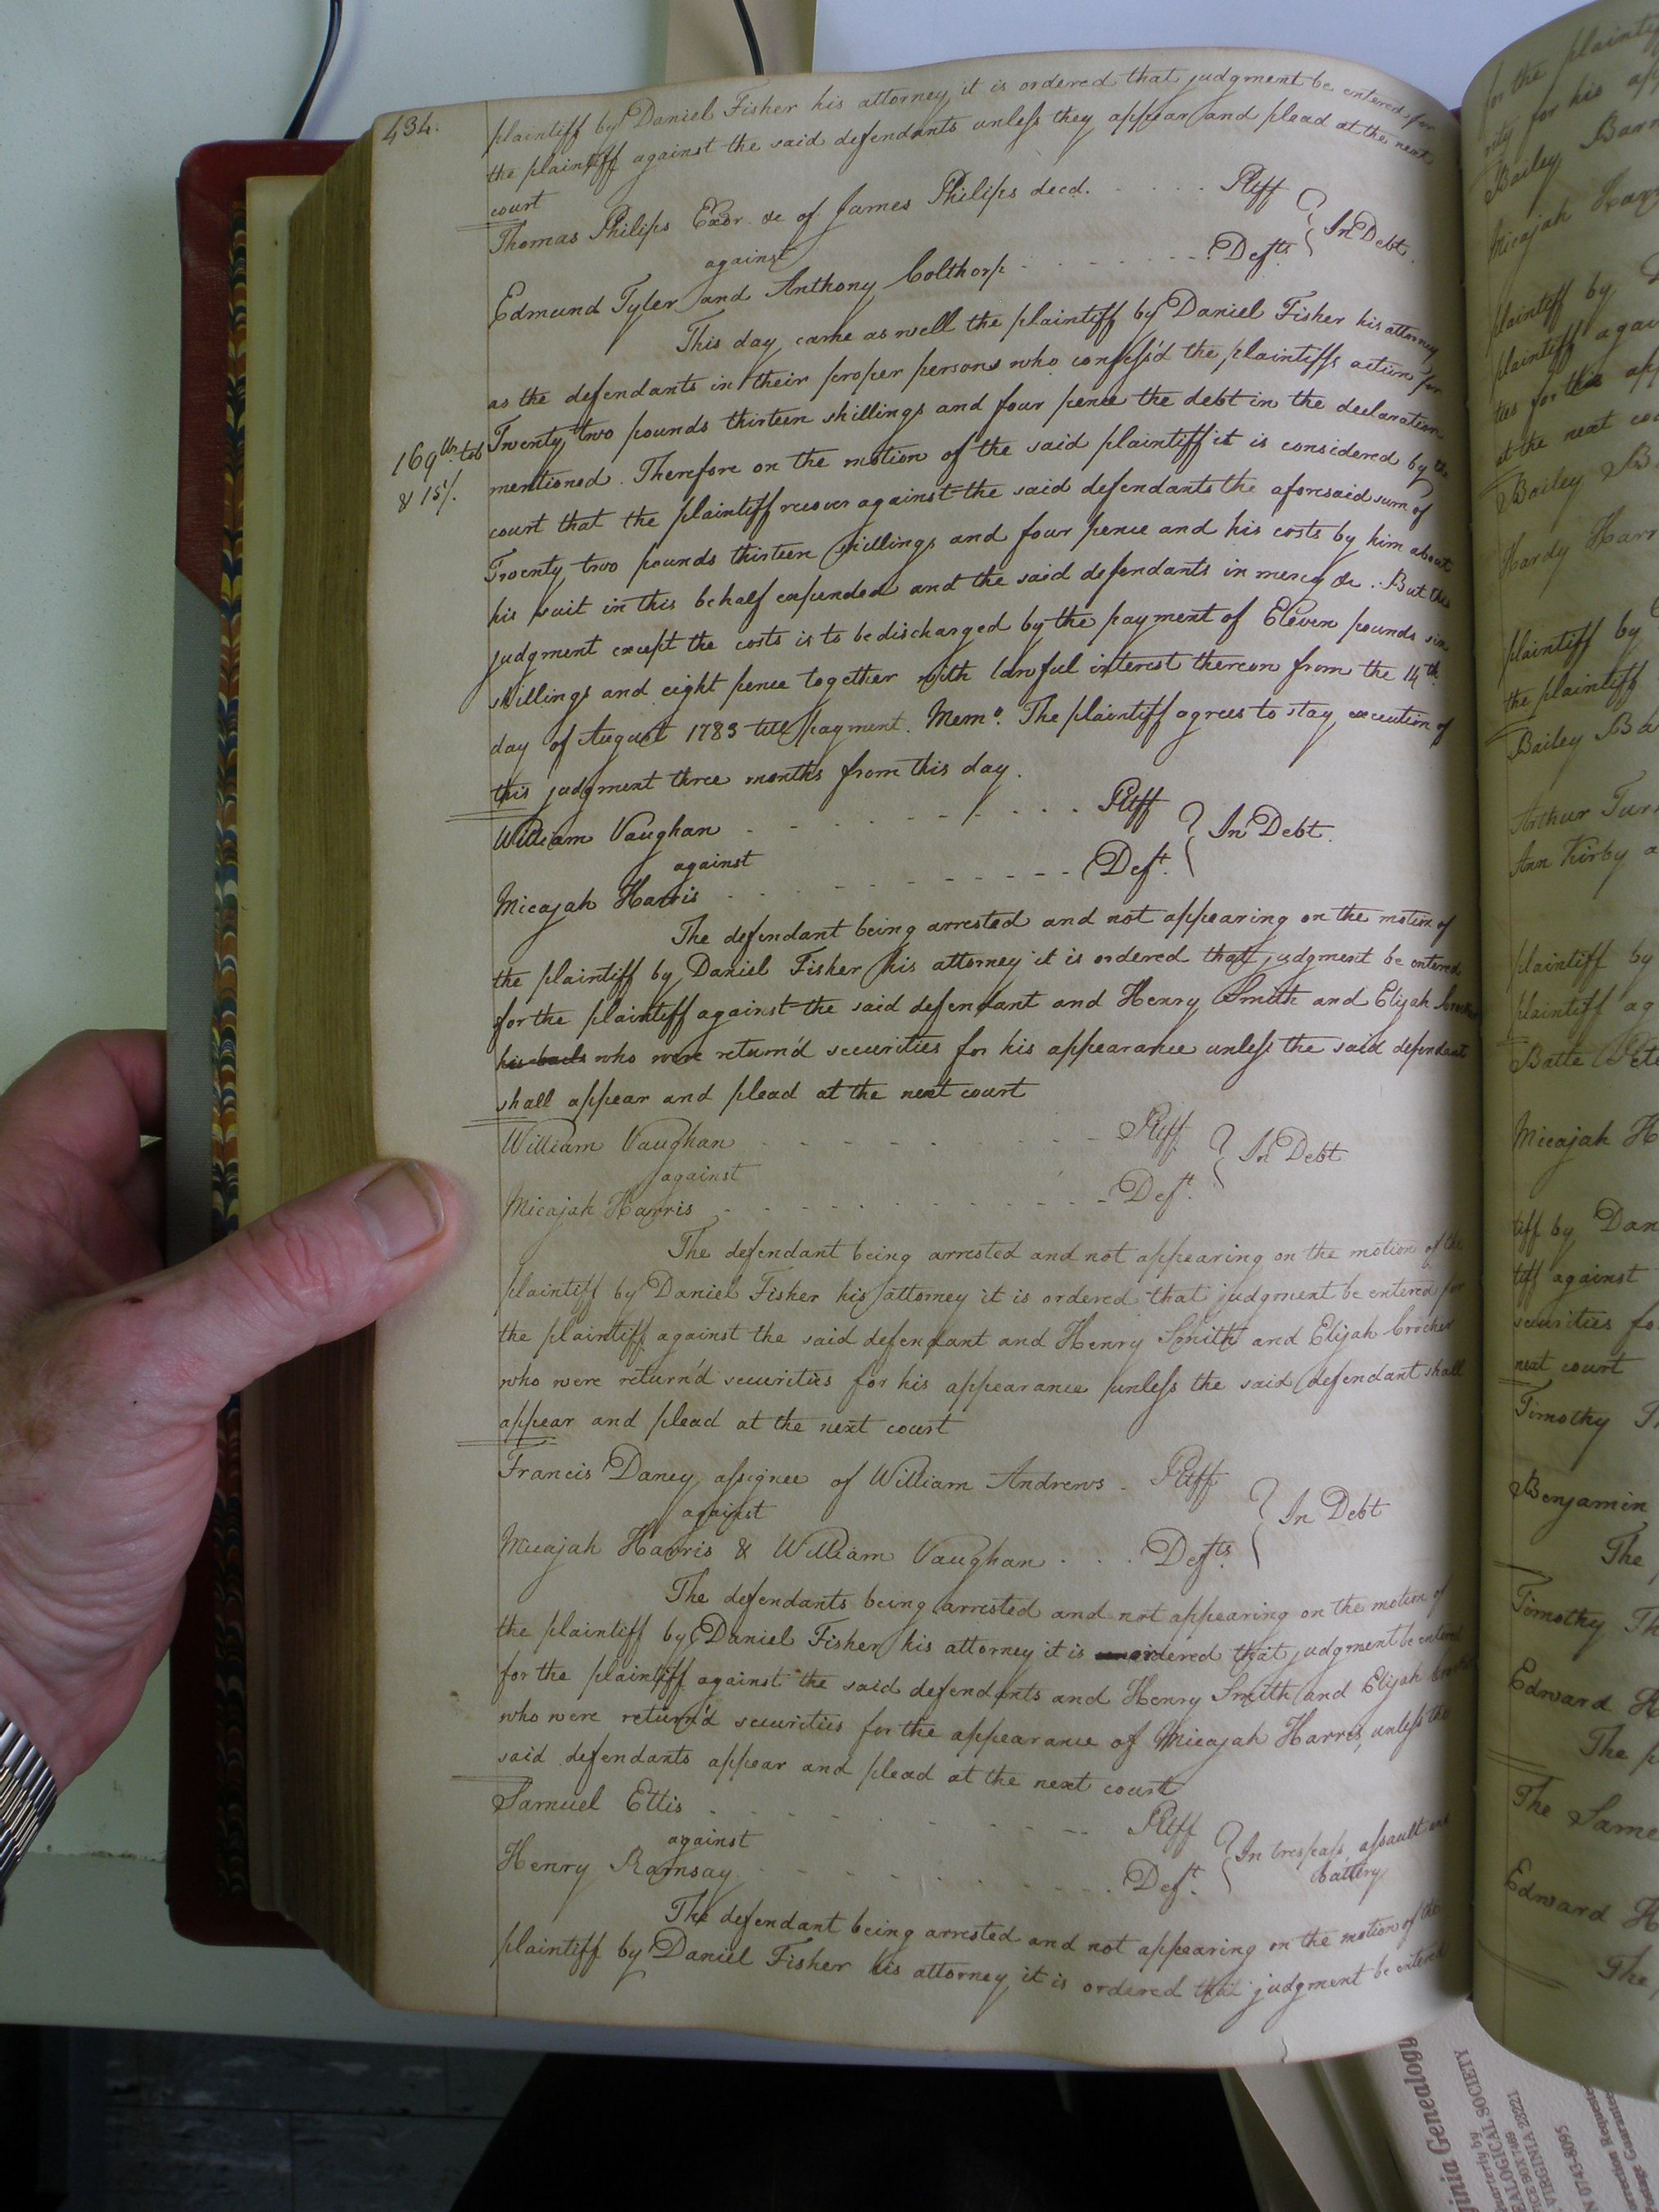 434.
plaintiff by Daniel Fisher his attorney it is ordered that judgment be entered for
the plaintiff against the said defendants unless they appear and plead at the next
court
Thomas Philips Exor. &c of James Philips decd. . . . . . Pltff
against
In Debt.
Edmund Tyler and Anthony Colthorp - - - - - - - Defts.
This day came as well the plaintiff by Daniel Fisher his attorney
as the defendants in their proper persons who confess'd the plaintiffs action for
Twenty two pounds thirteen shillings and four pence the debt in the declaration
169 lbs. tob
& 15/.
mentioned. Therefore on the motion of the said plaintiff it is considered by the
court that the plaintiff recover against the said defendants the aforesaid sum of
Twenty two pounds thirteen shillings and four pence and his costs by him about
his suit in this behalf expended and the said defendants in mercy &c. But this
judgment except the costs is to be discharged by the payment of Eleven pounds six
shillings and eight pence together with lawful interest thereon from the 14th.
day of August 1783 till payment. Memo. The plaintiff agrees to stay execution of
this judgment three months from this day.
William Vaughan - - - - - - - . . . Pltff
against
In Debt.
Micajah Harris - - - - - - - - - - Deft.
The defendant being arrested and not appearing on the motion of
the plaintiff by Daniel Fisher his attorney it is ordered that judgment be entered
for the plaintiff against the said defendant and Henry Smith and Elijah Crocker
his bails who were return'd securities for his appearance unless the said defendant
shall appear and plead at the next court
William Vaughan - - - - - - - - - - Pltff
against
In Debt
Micajah Harris - - - - - - - - - - Deft.
The defendant being arrested and not appearing on the motion of the
plaintiff by Daniel Fisher his attorney it is ordered that judgment be entered for
the plaintiff against the said defendant and Henry Smith and Elijah Crocker
who were return'd securities for his appearance unless the said defendant shall
appear and plead at the next court
Francis Dancy assignee of William Andrews - Pltff
against
In Debt
Micajah Harris & William Vaughan . . . Defts.
The defendants being arrested and not appearing on the motion of
the plaintiff by Daniel Fisher his attorney it is ordered that judgment be entered
for the plaintiff against the said defendants and Henry Smith and Elijah Crocker
who were return'd securities for the appearance of Micajah Harris, unless the
said defendants appear and plead at the next court
Samuel Ellis - - - - - - - - - Pltff
against
In trespass, assault and
battery
Henry Ramsay - - - - - - - - - Deft.
The defendant being arrested and not appearing on the motion of the
plaintiff by Daniel Fisher his attorney it is ordered that judgment be entered
for the plainti
Bailey Barn
Micajah Har
plaintiff by
plaintiff again
ties for the app
at the next cou
Bailey B
Hardy Harr
plaintiff by
the plaintiff
Bailey Ba
Arthur Tur
Ann Kirby a
plaintiff by
plaintiff ag
Batte Pete
Micajah H
tiff by Dan
tiff against
securities fo
next court
Timothy Th
Benjamin
The
Timothy Th
Edward H
The p
The Same
Edward H
The
ginia Genealogy
uarterly by
EALOGICAL SOCIETY
ICE BOX 7469
VIRGINIA 23221
0743-8095
rrection Requested
Postage Guarantee